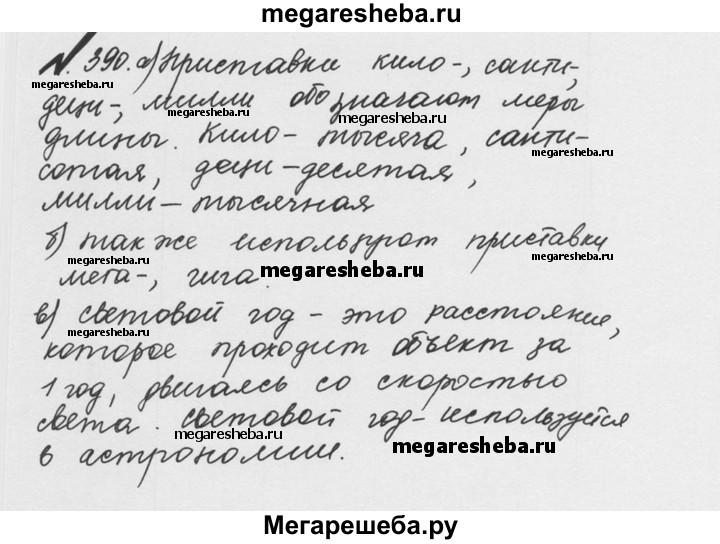 megaresheba.ru
N. 390. а) Приставки кило-, санти-,
megaresheba.ru
деци-, милли обозначают меры
megaresheba.ru
длины. Кило - тысяча, санти-
megaresheba.ru
сотая, деци - десятая,
милли - тысячная
б) также используют приставки
megaresheba.ru
мега-, гига.
megaresheba.ru
в) световой год - это расстояние,
megaresheba.ru
которое проходит объект за
1 год, двигаясь со скоростью
света. Световой год - используется
megaresheba.ru
в астрономии.
megaresheba.ru
Мегарешеба.ру